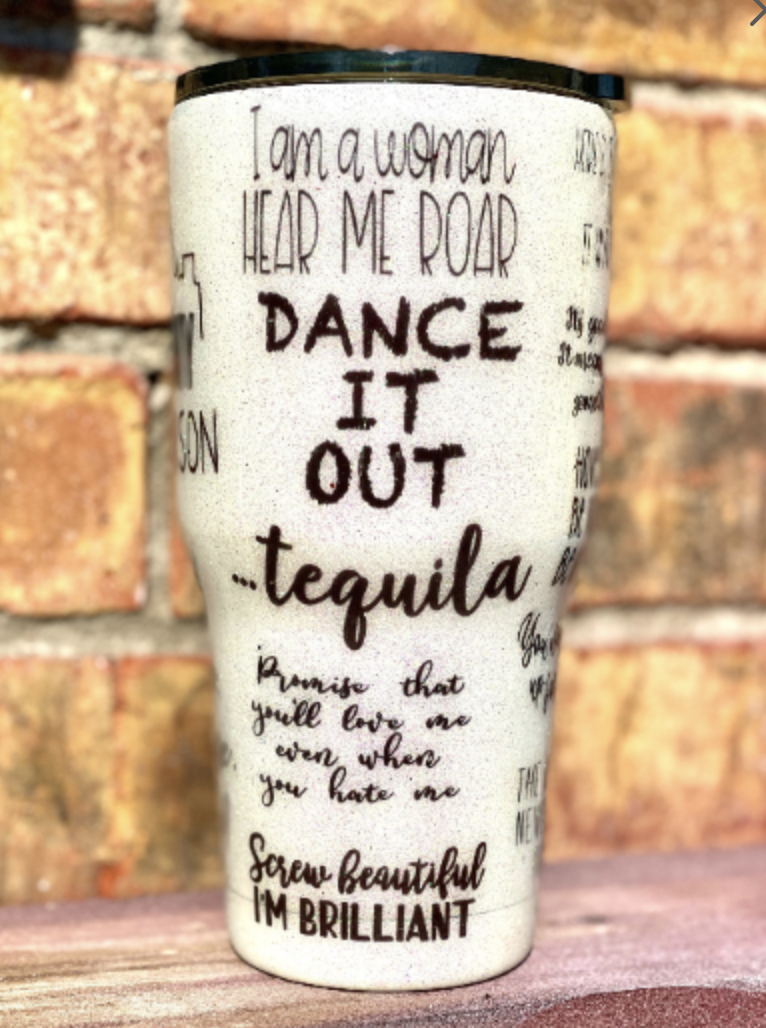 I am a woman
HEAR ME ROAR
DANCE
IT
OUT
...tequila
Promise that
you'll love me
even when
you hate me
Screw beautiful
I'M BRILLIANT
SON